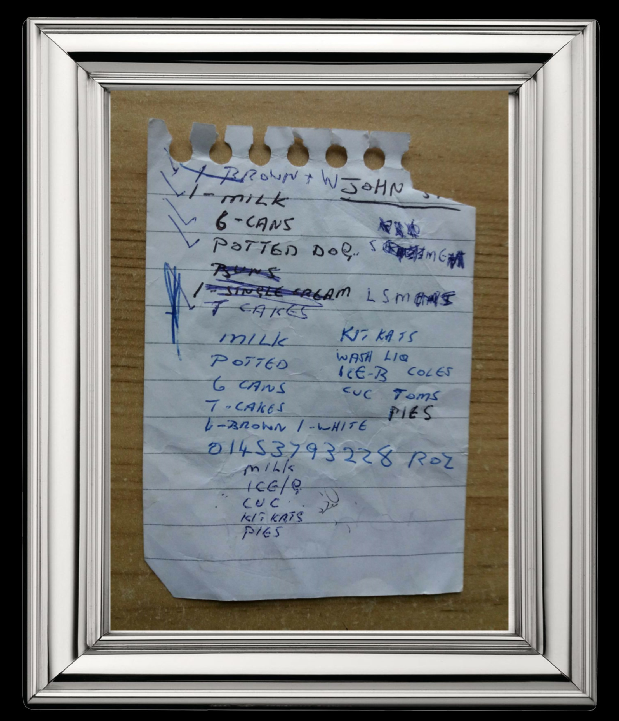 1 BROWN + W JOHN
1- MILK
6-CANS
POTTED DOG
BUNS
1-SINGLE CREAM LSM
T CAKES
MILK KIT KATS
POTTED WASH LIQ
ICE-B COLES
6 CANS CUC TOMS
T-CAKES PIES
1-BROWN 1-WHITE
01453793228 ROZ
MILK
ICE/B
CUC
KIT KATS
PIES